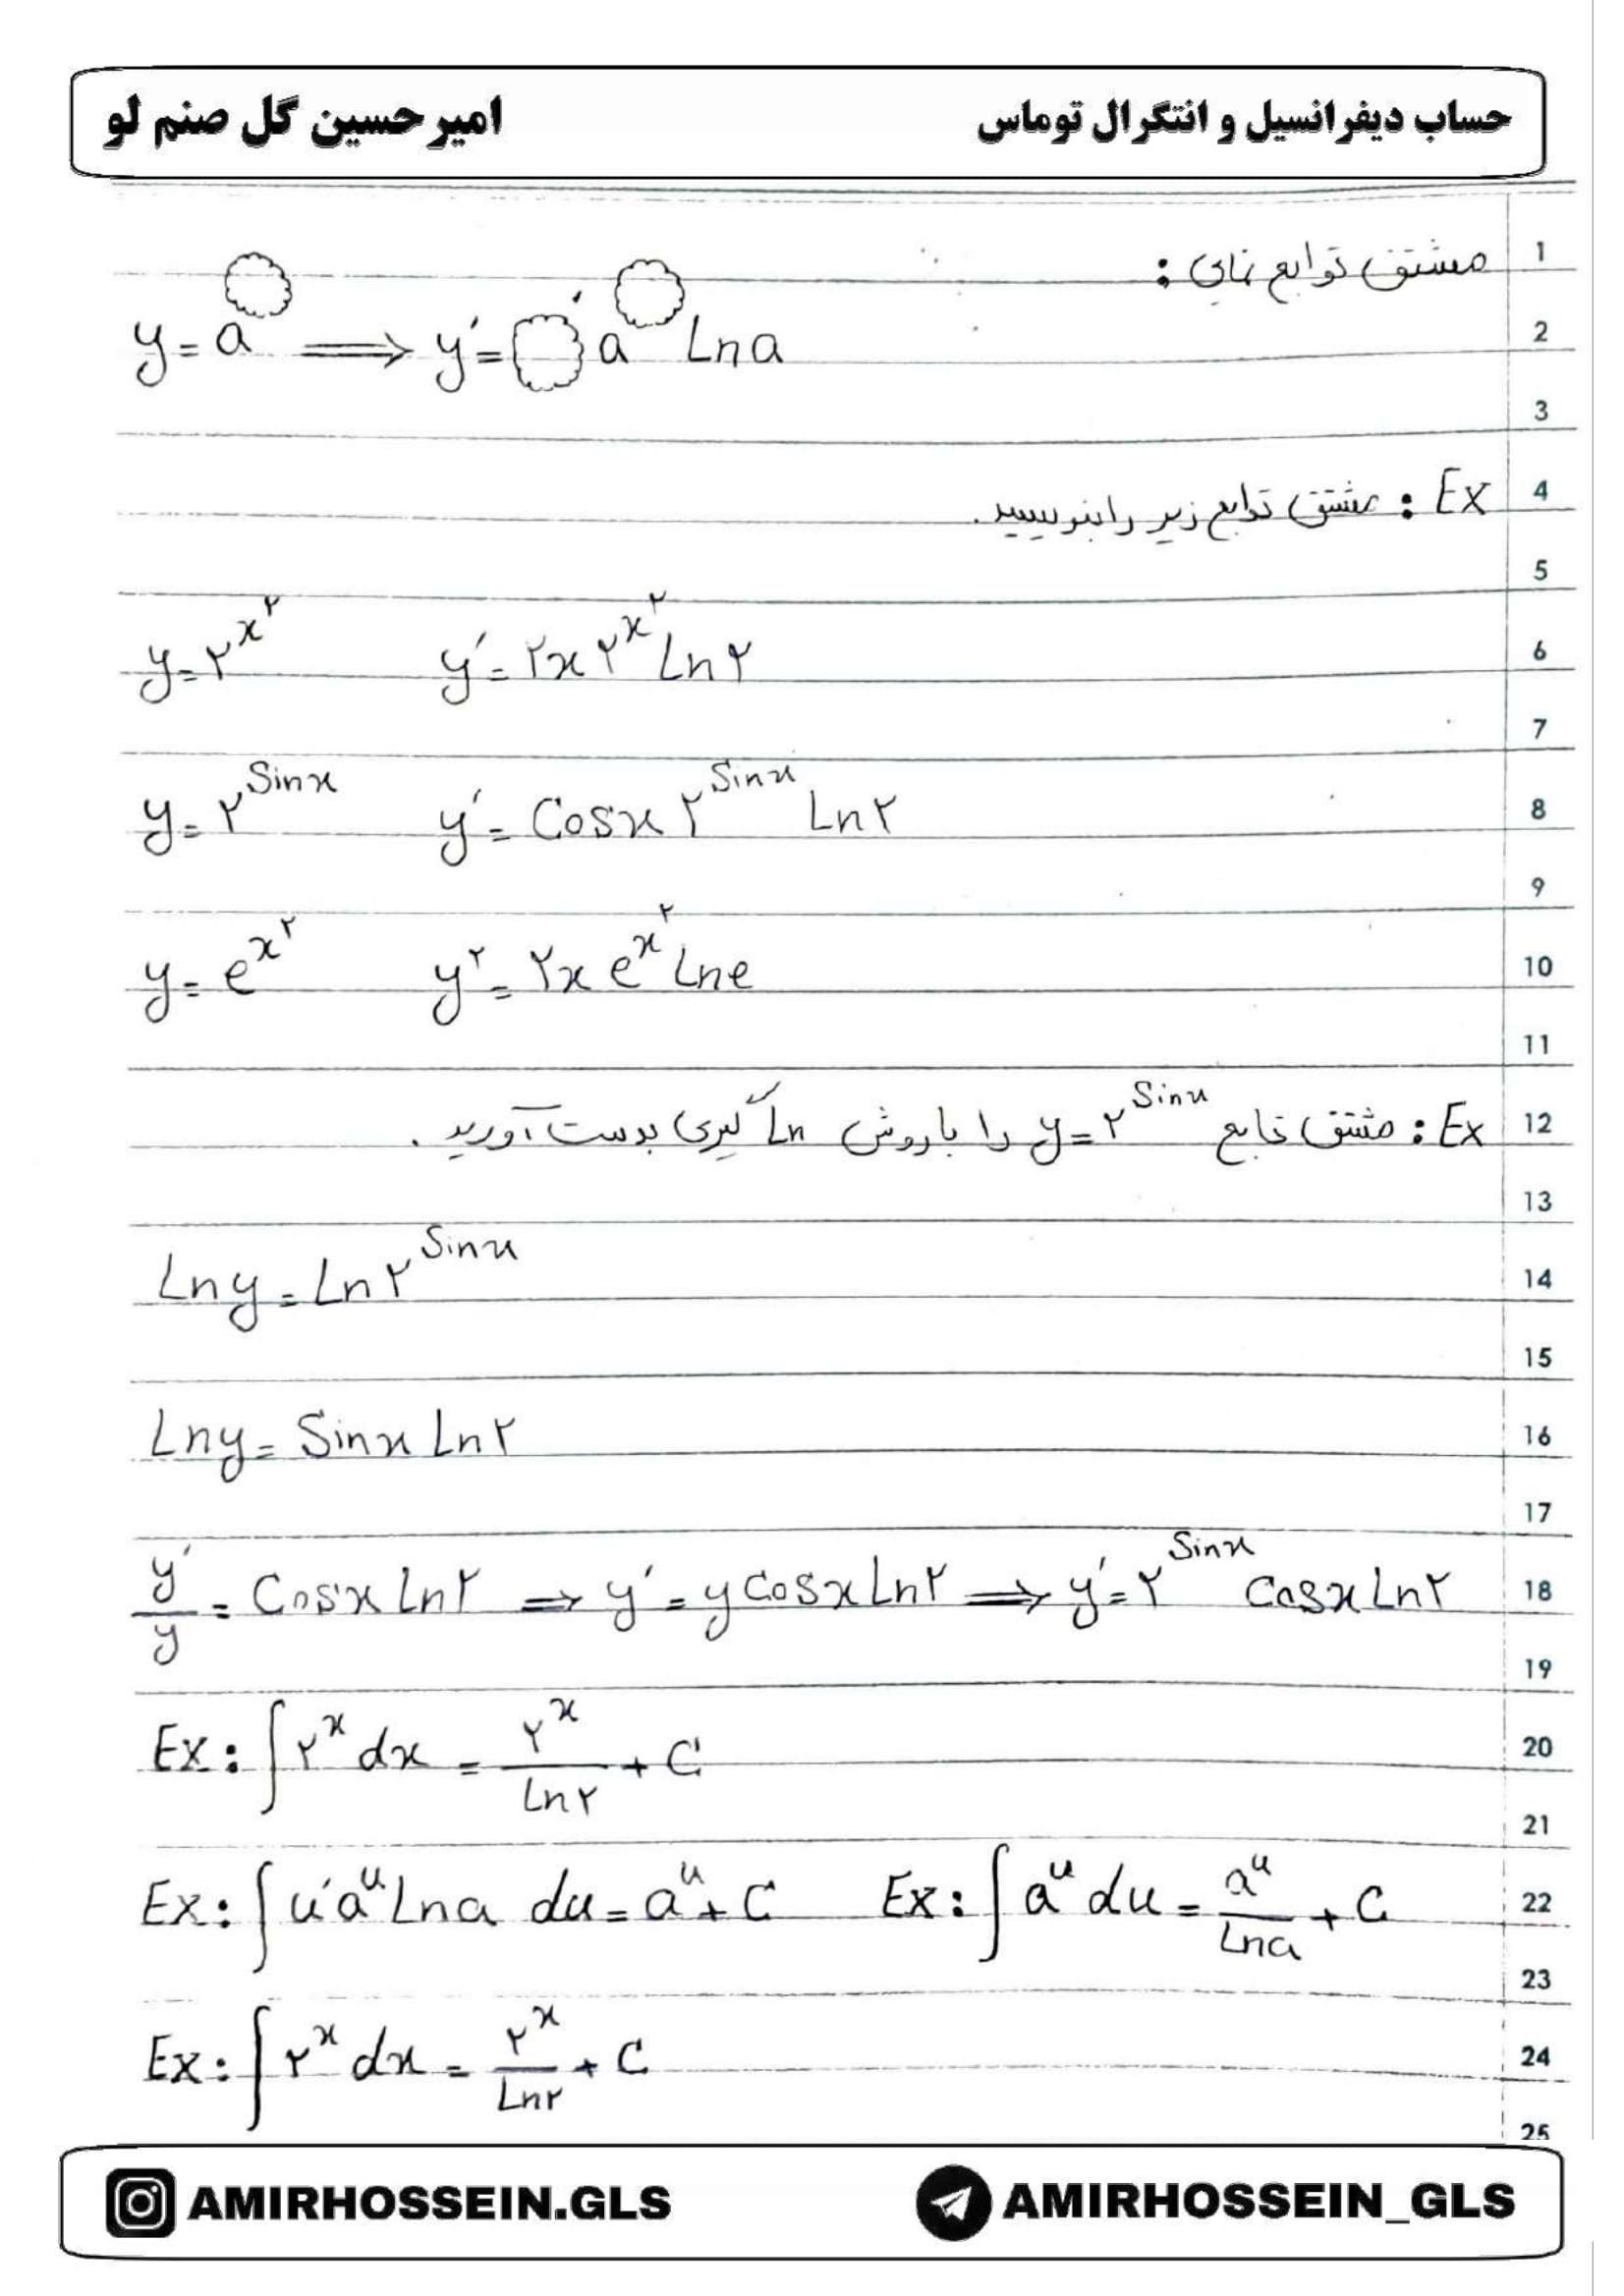 حساب دیفرانسیل و انتگرال توماس امیرحسین گل صنم لو
1 مشتق توابع نمایی :
2 y = a ⟹ y′ = ′ a Ln a
3
4 Ex : مشتق توابع زیر را بنویسید.
5
6 y = ۲^x^۲ y′ = ۲x ۲^x^۲ Ln ۲
7
8 y = ۲^Sinx y′ = Cosx ۲^Sinx Ln ۲
9
10 y = e^x^۲ y^۲ = ۲x e^x^۲ Ln e
11
12 Ex : مشتق تابع y = ۲^Sinx را با روش Ln گیری بدست آورید.
13
14 Ln y = Ln ۲^Sinx
15
16 Ln y = Sinx Ln ۲
17
18 y′/y = Cosx Ln ۲ ⟹ y′ = y Cosx Ln ۲ ⟹ y′ = ۲^Sinx Cosx Ln ۲
19
20 Ex : ∫ ۲^x dx = ۲^x/Ln ۲ + C
21
22 Ex : ∫ u′ a^u Ln a du = a^u + C Ex : ∫ a^u du = a^u/Ln a + C
23
24 Ex : ∫ ۲^x dx = ۲^x/Ln ۲ + C
25
AMIRHOSSEIN.GLS AMIRHOSSEIN_GLS